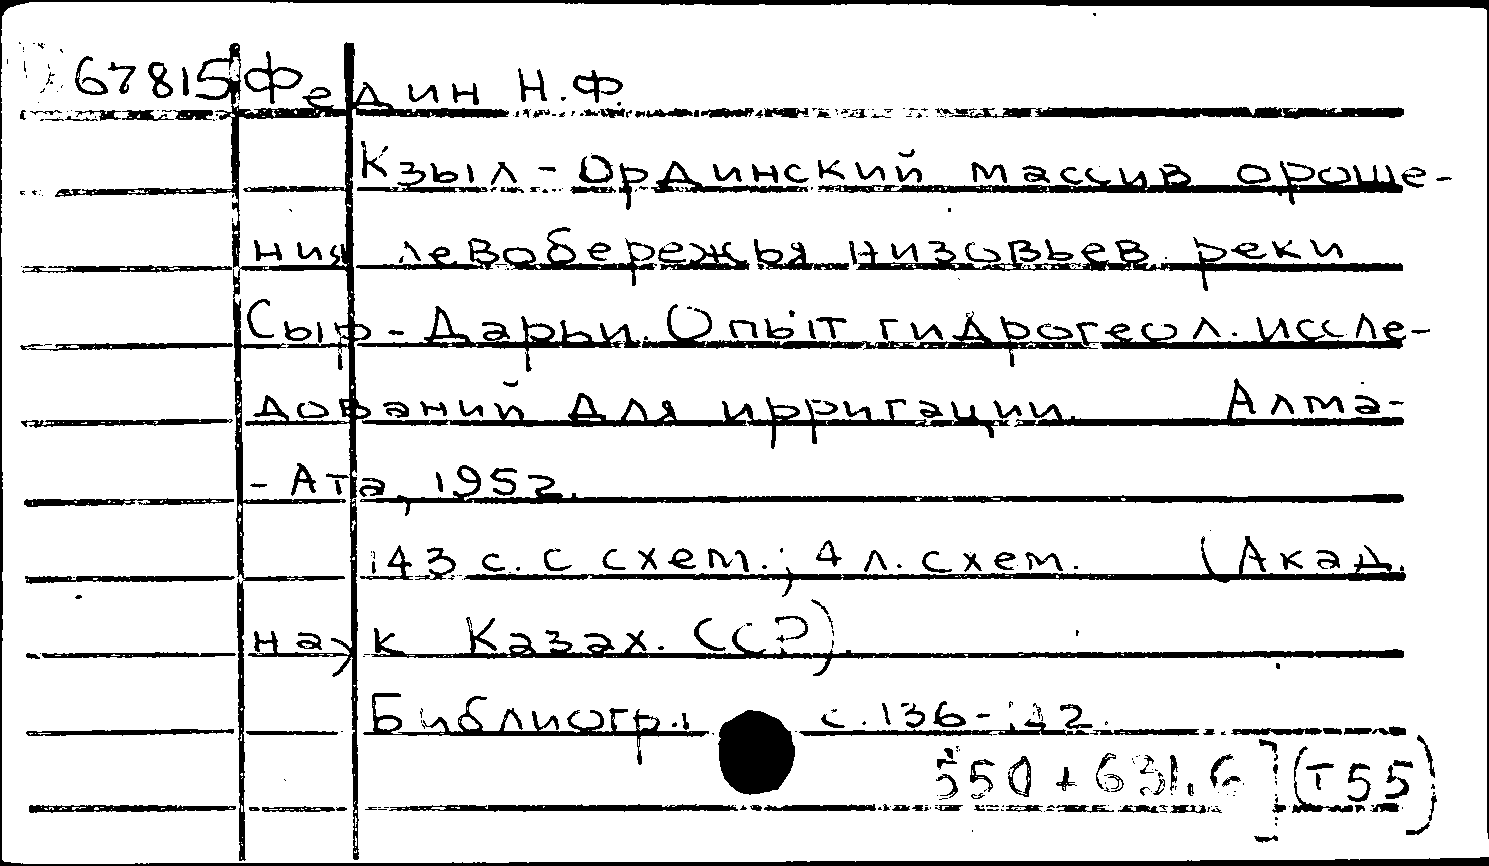 67815 Федин Н.Ф.
Кзыл-Ординский массив ороше-
ния левобережья низовьев реки
Сыр-Дарьи. Опыт гидрогеол. иссле-
дований для ирригации. Алма-
-Ата, 1952.
143 с. с схем.; 4 л. схем. (Акад.
наук Казах. ССР).
Библиогр.: с. 136-142.
550+631.6] (Т55)